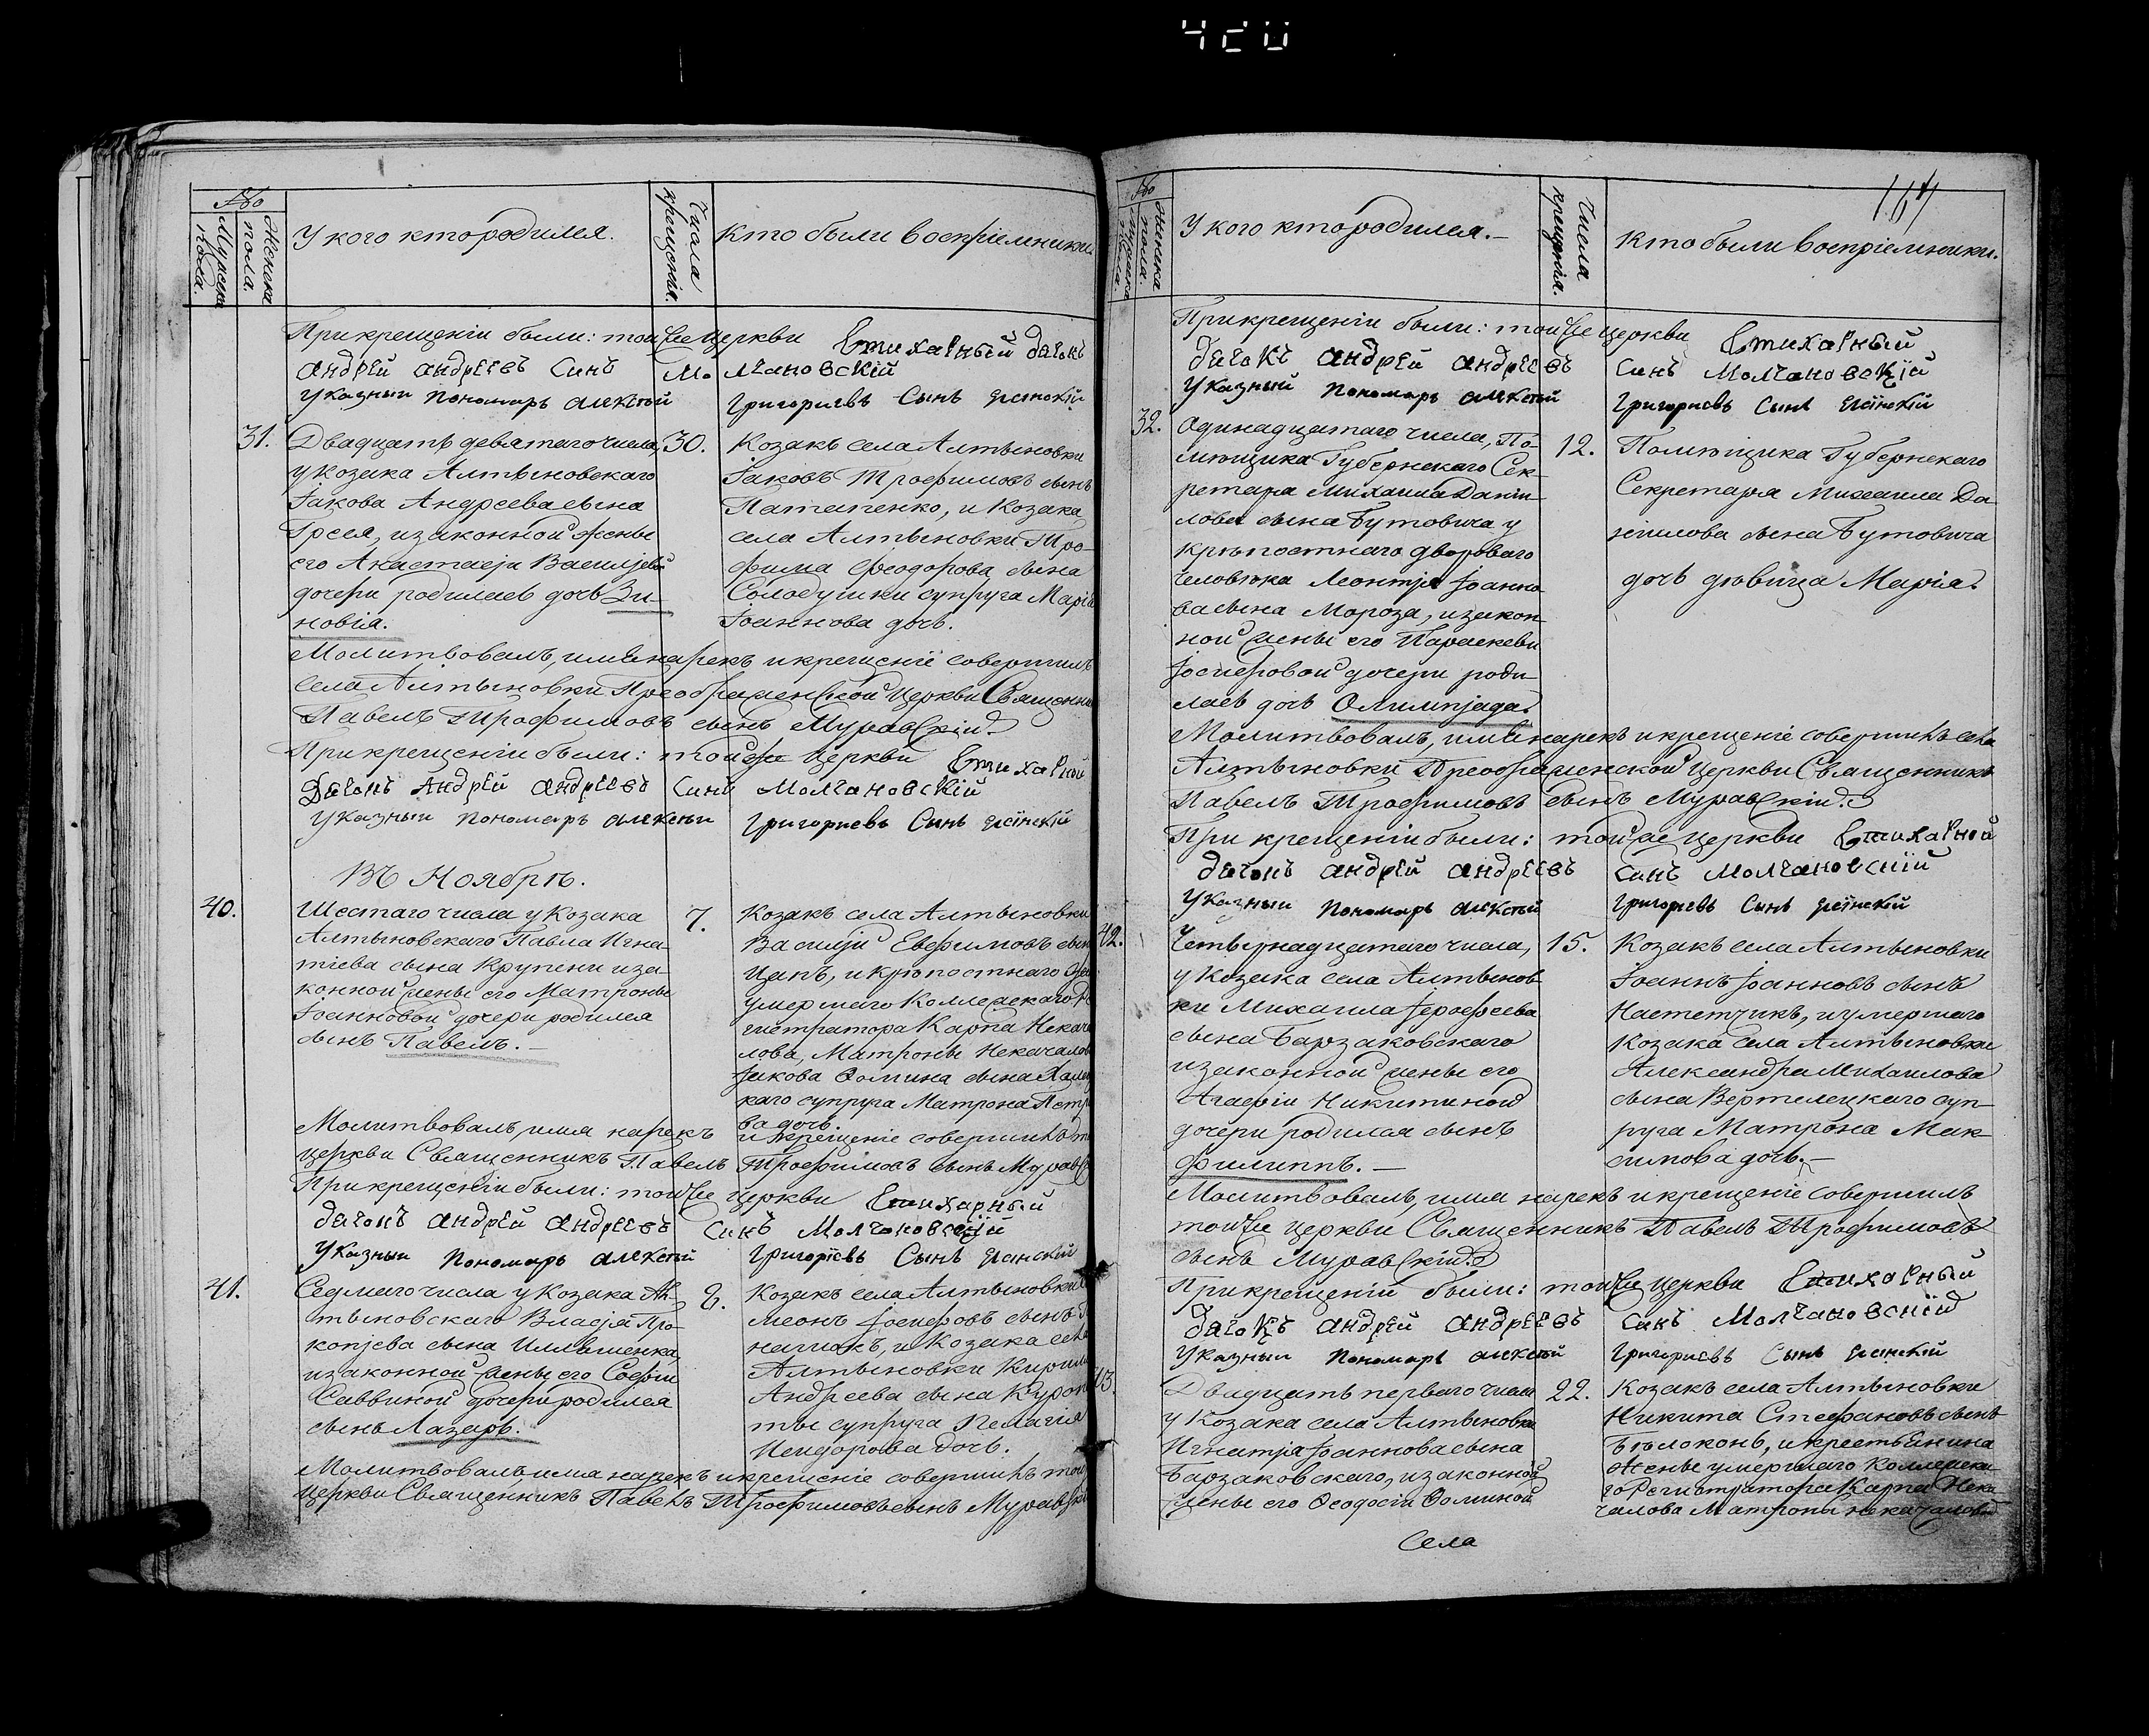 №
Мужеска пола.
Женска пола.
У кого кто родился.
Числа крещенія.
Кто были воспріемники
При крещеніи были: тойже церкви Стихарный дьячокъ
Андрей Андреевъ Синъ Молчановскій
Указный пономарь Алексѣй Григориевъ Сынъ
31.
Двадцать девятаго числа,
у козака Алтыновскаго
Іакова Андреева сына
изаконной жены
его Анастасіи Василіевой
дочери родилась дочь Зи-
новія.
30.
Козакъ села Алтыновки
Іаковъ Трофимовъ сынъ
и Козака
села Алтыновки Тро-
фима Феодорова сына
Солодушки супруга Марія
Іоаннова дочь.
Молитвовалъ, имя нарекъ и крещеніе совершилъ
села Алтыновки Преображенской Церкви Священни
Павелъ Трофимовъ сынъ Муравскій.
При крещеніи были: тойже Церкви Стихарной
Дячокъ Андрей Андреевъ Синъ Молчановскій
Указный Пономарь Алексѣй Григориевъ Синъ
Въ Ноябрѣ.
40.
Шестаго числа у Козака
Алтыновскаго Павла Игна-
тіева сына Крупени иза-
конной жены его Матроны
Іоанновой дочери родился
сынъ Павелъ.—
7.
Козакъ села Алтыновки
Василій Евфимовъ сын
Цапъ, и крѣпостнаго
умершаго Коллежскаго Ре
гистратора Карпа Некача
лова, Матроны Некачалов
Іакова Фомина сына
каго супруга Матрона Петро
ва дочь.
Молитвовалъ, имя нарекъ и крещеніе совершилъ той
церкви Священникъ Павелъ Трофимовъ сынъ Муравс
При крещеніи были: тойже церкви Стихарный
дячокъ Андрей Андреевъ Синъ Молчановскій
Указный Пономарь Алексѣй Григоріевъ Сынъ
41.
Седмаго числа у Козака Ал-
тыновскаго Власія Про-
копіева сына Илляшенка,
изаконной жены его Софіи
Саввиной дочери родился
сынъ Лазарь.
8.
Козакъ села Алтыновки
меонъ Іосифовъ сынъ
и Козака села
Алтыновки Кирила
Андреева сына
супруга Пелагія
Исидорова дочь.
Молитвовалъ имя нарекъ и крещеніе совершилъ той
церкви Священникъ Павелъ Трофимовъ сынъ Муравскі
164
№
Женска пола.
У кого кто родился.—
Числа крещенія.
Кто были воспріемники.
При крещеніи были: тойже церкви Стихарный
дячокъ Андрей Андреевъ Синъ Молчановскій
Указный Пономарь Алексѣй Григориевъ Сынъ
32.
Одинадцатаго числа, По-
мѣщика Губернскаго Сек-
ретаря Михаила Даніи-
лова сына Бутовича у
крѣпостнаго двороваго
человѣка Леонтія Іоанно
ва сына Мороза, изакон
ной жены его Параскеви
Іосифовой дочери роди
лась дочь Олимпіада.
12.
Помѣщика Губернскаго
Секретаря Михаила Да-
ніилова сына Бутовича
дочь дѣвица Марія.
Молитвовалъ, имя нарекъ и крещеніе совершилъ села
Алтыновки Преображенской Церкви Священникъ
Павелъ Трофимовъ сынъ Муравскій.
При крещеніи были: тойже церкви Стихарной
дячокъ Андрей Андреевъ Синъ Молчановскій
Указный Пономарь Алексѣй Григорьевъ Сынъ
42.
Четвернадцатаго числа,
у Козака села Алтынов
ки Михаила Іерофеева
сына Барзаковскаго
изаконной жены его
Агафіи Никитиной
дочери родился сынъ
Филиппъ.—
15.
Козакъ села Алтыновки
Іоаннъ Іоанновъ сынъ
и умершаго
Козака села Алтыновки
Александра Михаилова
сына Вертелецкаго суп-
руга Матрона Мак-
симова дочь.—
Молитвовалъ, имя нарекъ и крещеніе совершилъ
тойже церкви Священникъ Павелъ Трофимовъ
сынъ Муравскій.
При крещеніи были: тойже церкви Стихарный
Дячокъ Андрей Андреевъ Синъ Молчановскій
Указный Пономарь Алексѣй Григориевъ Сынъ
43.
Двадцать перваго числа
у Козака села Алтыновки
Игнатія Іоаннова сына
Барзаковскаго, изаконной
жены его Феодосіи Фоминой
22.
Козакъ села Алтыновки
Никита Стефановъ сынъ
Бѣлоконь, и крестьянина
жены умершаго Коллежска
го Регистратора Карпа Нека
чалова Матроны Некачаловой
Села